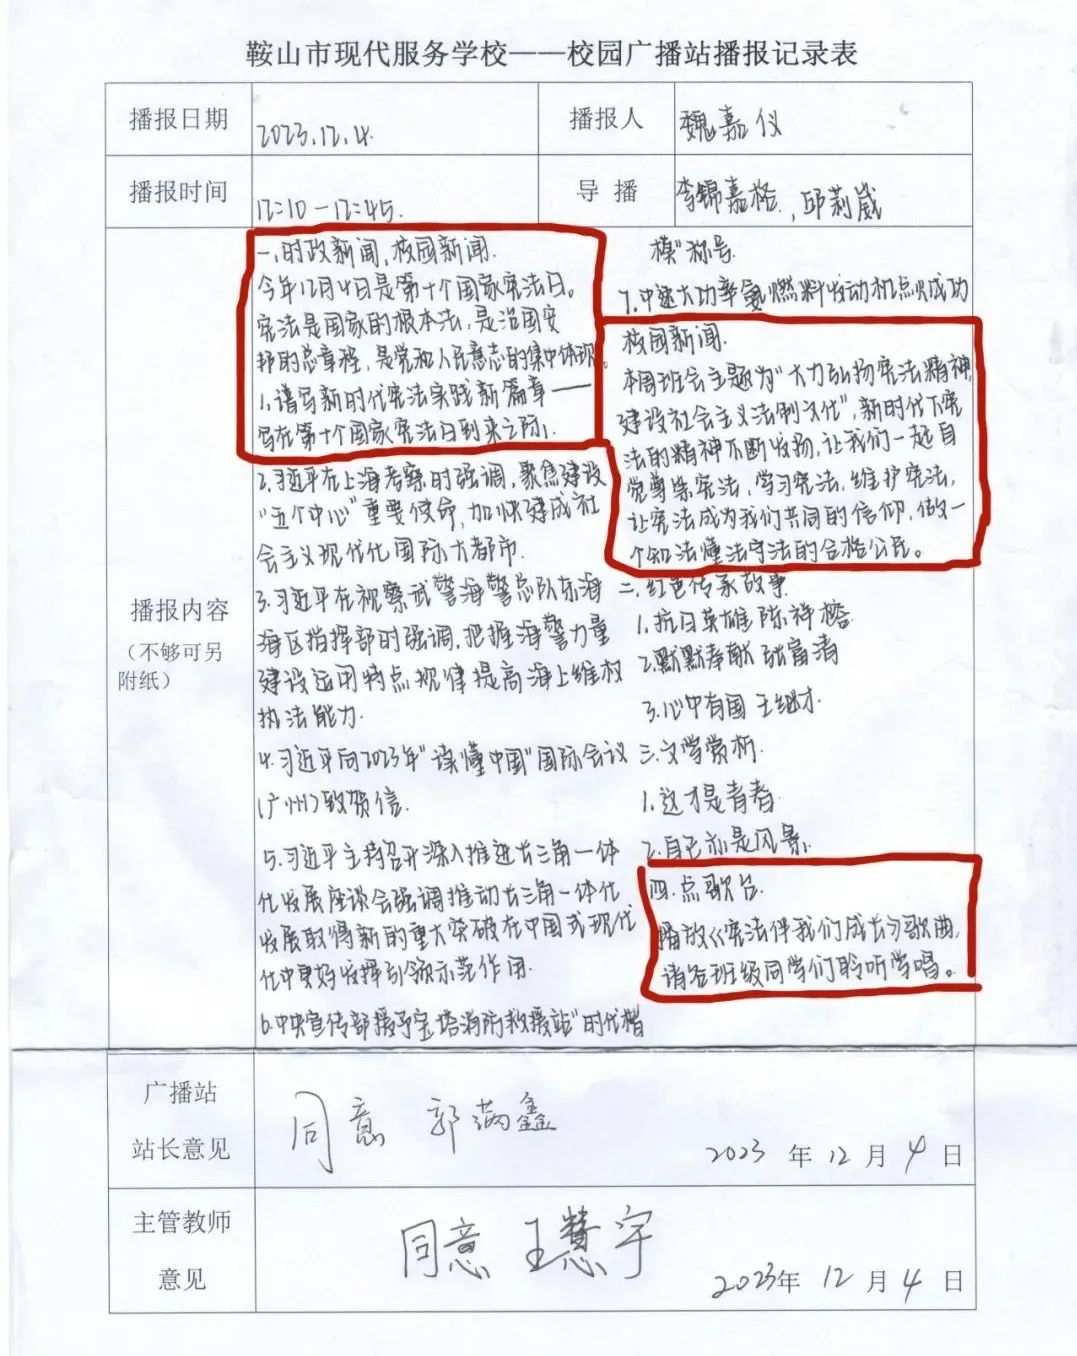 鞍山市现代服务学校——校园广播站播报记录表
播报日期
2023.12.4
播报人
魏嘉仪
播报时间
12:10-12:45.
导 播
李锦嘉格,邱莉崴
播报内容
（不够可另
附纸）
一、时政新闻,校园新闻.
今年12月4日是第十个国家宪法日。
宪法是国家的根本法,是治国安
邦的总章程,是党和人民意志的集中体现。
1.谱写新时代宪法实践新篇章——
写在第十个国家宪法日到来之际.
2.习近平在上海考察时强调,聚焦建设
“五个中心”重要使命,加快建成社
会主义现代化国际大都市.
3.习近平在视察武警海警总队东海
海区指挥部时强调,把握海警力量
建设运用特点规律提高海上维权
执法能力.
4.习近平向2023年“读懂中国”国际会议
(广州)致贺信.
5.习近平主持召开深入推进长三角一体
化发展座谈会强调推动长三角一体化
发展取得新的重大突破在中国式现代
化中更好发挥引领示范作用.
6.中央宣传部授予宝塔消防救援站”时代楷
模”称号
7.中速大功率氨燃料发动机点火成功
校园新闻.
本周班会主题为“大力弘扬宪法精神,
建设社会主义法制文化”,新时代下宪
法的精神不断发扬,让我们一起自
觉尊崇宪法,学习宪法,维护宪法,
让宪法成为我们共同的信仰,做一
个知法懂法守法的合格公民。
二.红色传家故事
1.抗日英雄陈祥榕
2.默默奉献张富清
3.心中有国 王继才.
三.文学赏析.
1.这才是青春
2.自己亦是风景.
四.点歌台.
播放《宪法伴我们成长》歌曲,
请各班级同学们聆听学唱。
广播站
站长意见
同意 郭满鑫
2023 年 12 月 4 日
主管教师
意见
同意 王慧宇
2023年 12 月 4 日